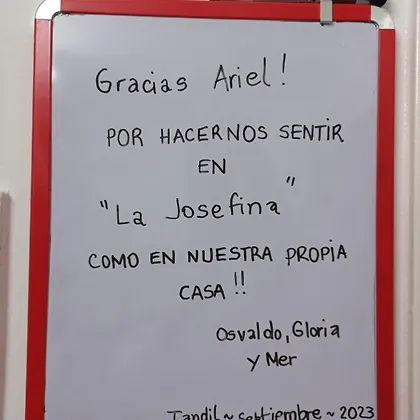 Gracias Ariel!
POR HACERNOS SENTIR
EN
"La Josefina"
COMO EN NUESTRA PROPIA
CASA!!
Osvaldo, Gloria
y Mer
Tandil ~ septiembre ~ 2023